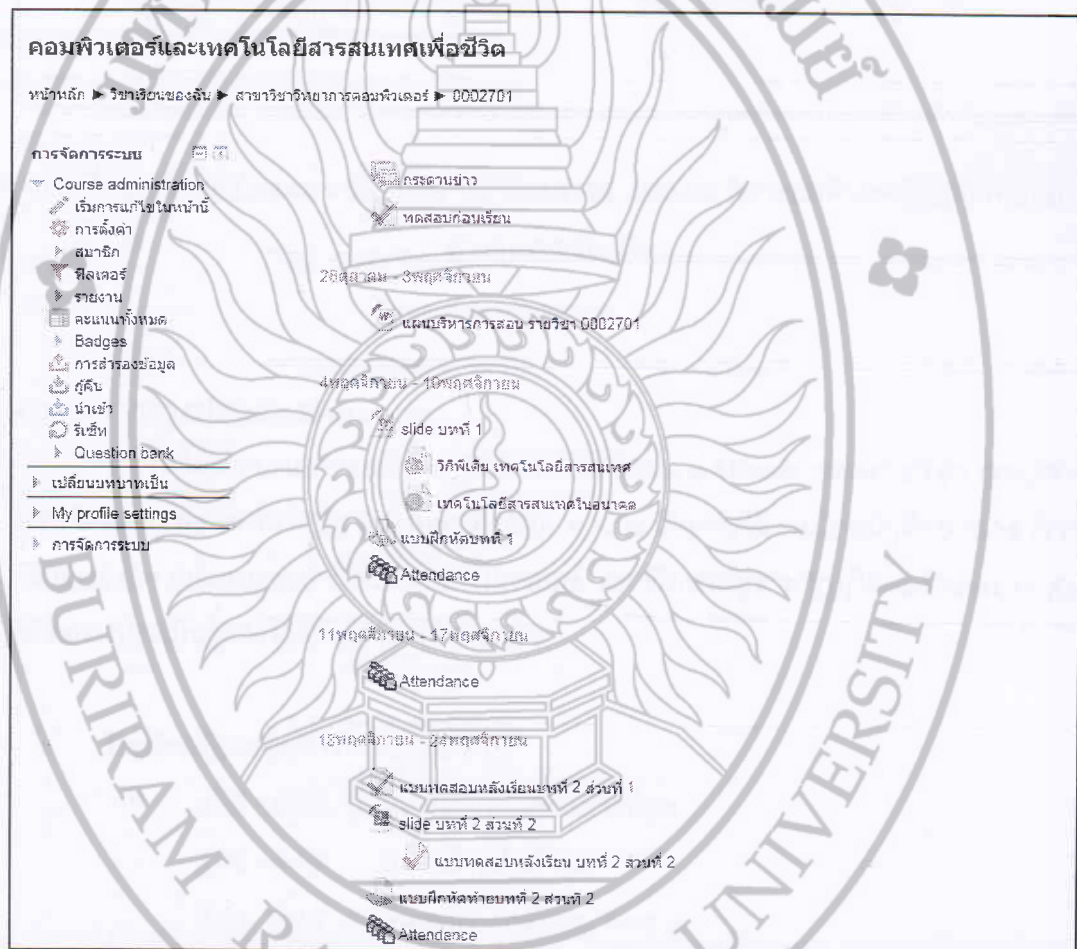 คอมพิวเตอร์และเทคโนโลยีสารสนเทศเพื่อชีวิต
หน้าหลัก ► วิชาเรียนของฉัน ► สาขาวิชาวิทยาการคอมพิวเตอร์ ► 0002701
การจัดการระบบ
Course administration
เริ่มการแก้ไขในหน้านี้
การตั้งค่า
สมาชิก
ฟิลเตอร์
รายงาน
คะแนนทั้งหมด
Badges
การสำรองข้อมูล
กู้คืน
นำเข้า
รีเซ็ท
Question bank
เปลี่ยนบทบาทเป็น
My profile settings
การจัดการระบบ
กระดานข่าว
ทดสอบก่อนเรียน
28ตุลาคม - 3พฤศจิกายน
แผนบริหารการสอน รายวิชา 0002701
4พฤศจิกายน - 10พฤศจิกายน
slide บทที่ 1
วิกิพีเดีย เทคโนโลยีสารสนเทศ
เทคโนโลยีสารสนเทศในอนาคต
แบบฝึกหัดบทที่ 1
Attendance
11พฤศจิกายน - 17พฤศจิกายน
Attendance
18พฤศจิกายน - 24พฤศจิกายน
แบบทดสอบหลังเรียนบทที่ 2 ส่วนที่ 1
slide บทที่ 2 ส่วนที่ 2
แบบทดสอบหลังเรียน บทที่ 2 ส่วนที่ 2
แบบฝึกหัดท้ายบทที่ 2 ส่วนที่ 2
Attendance
BURIRAM
UNIVERSITY